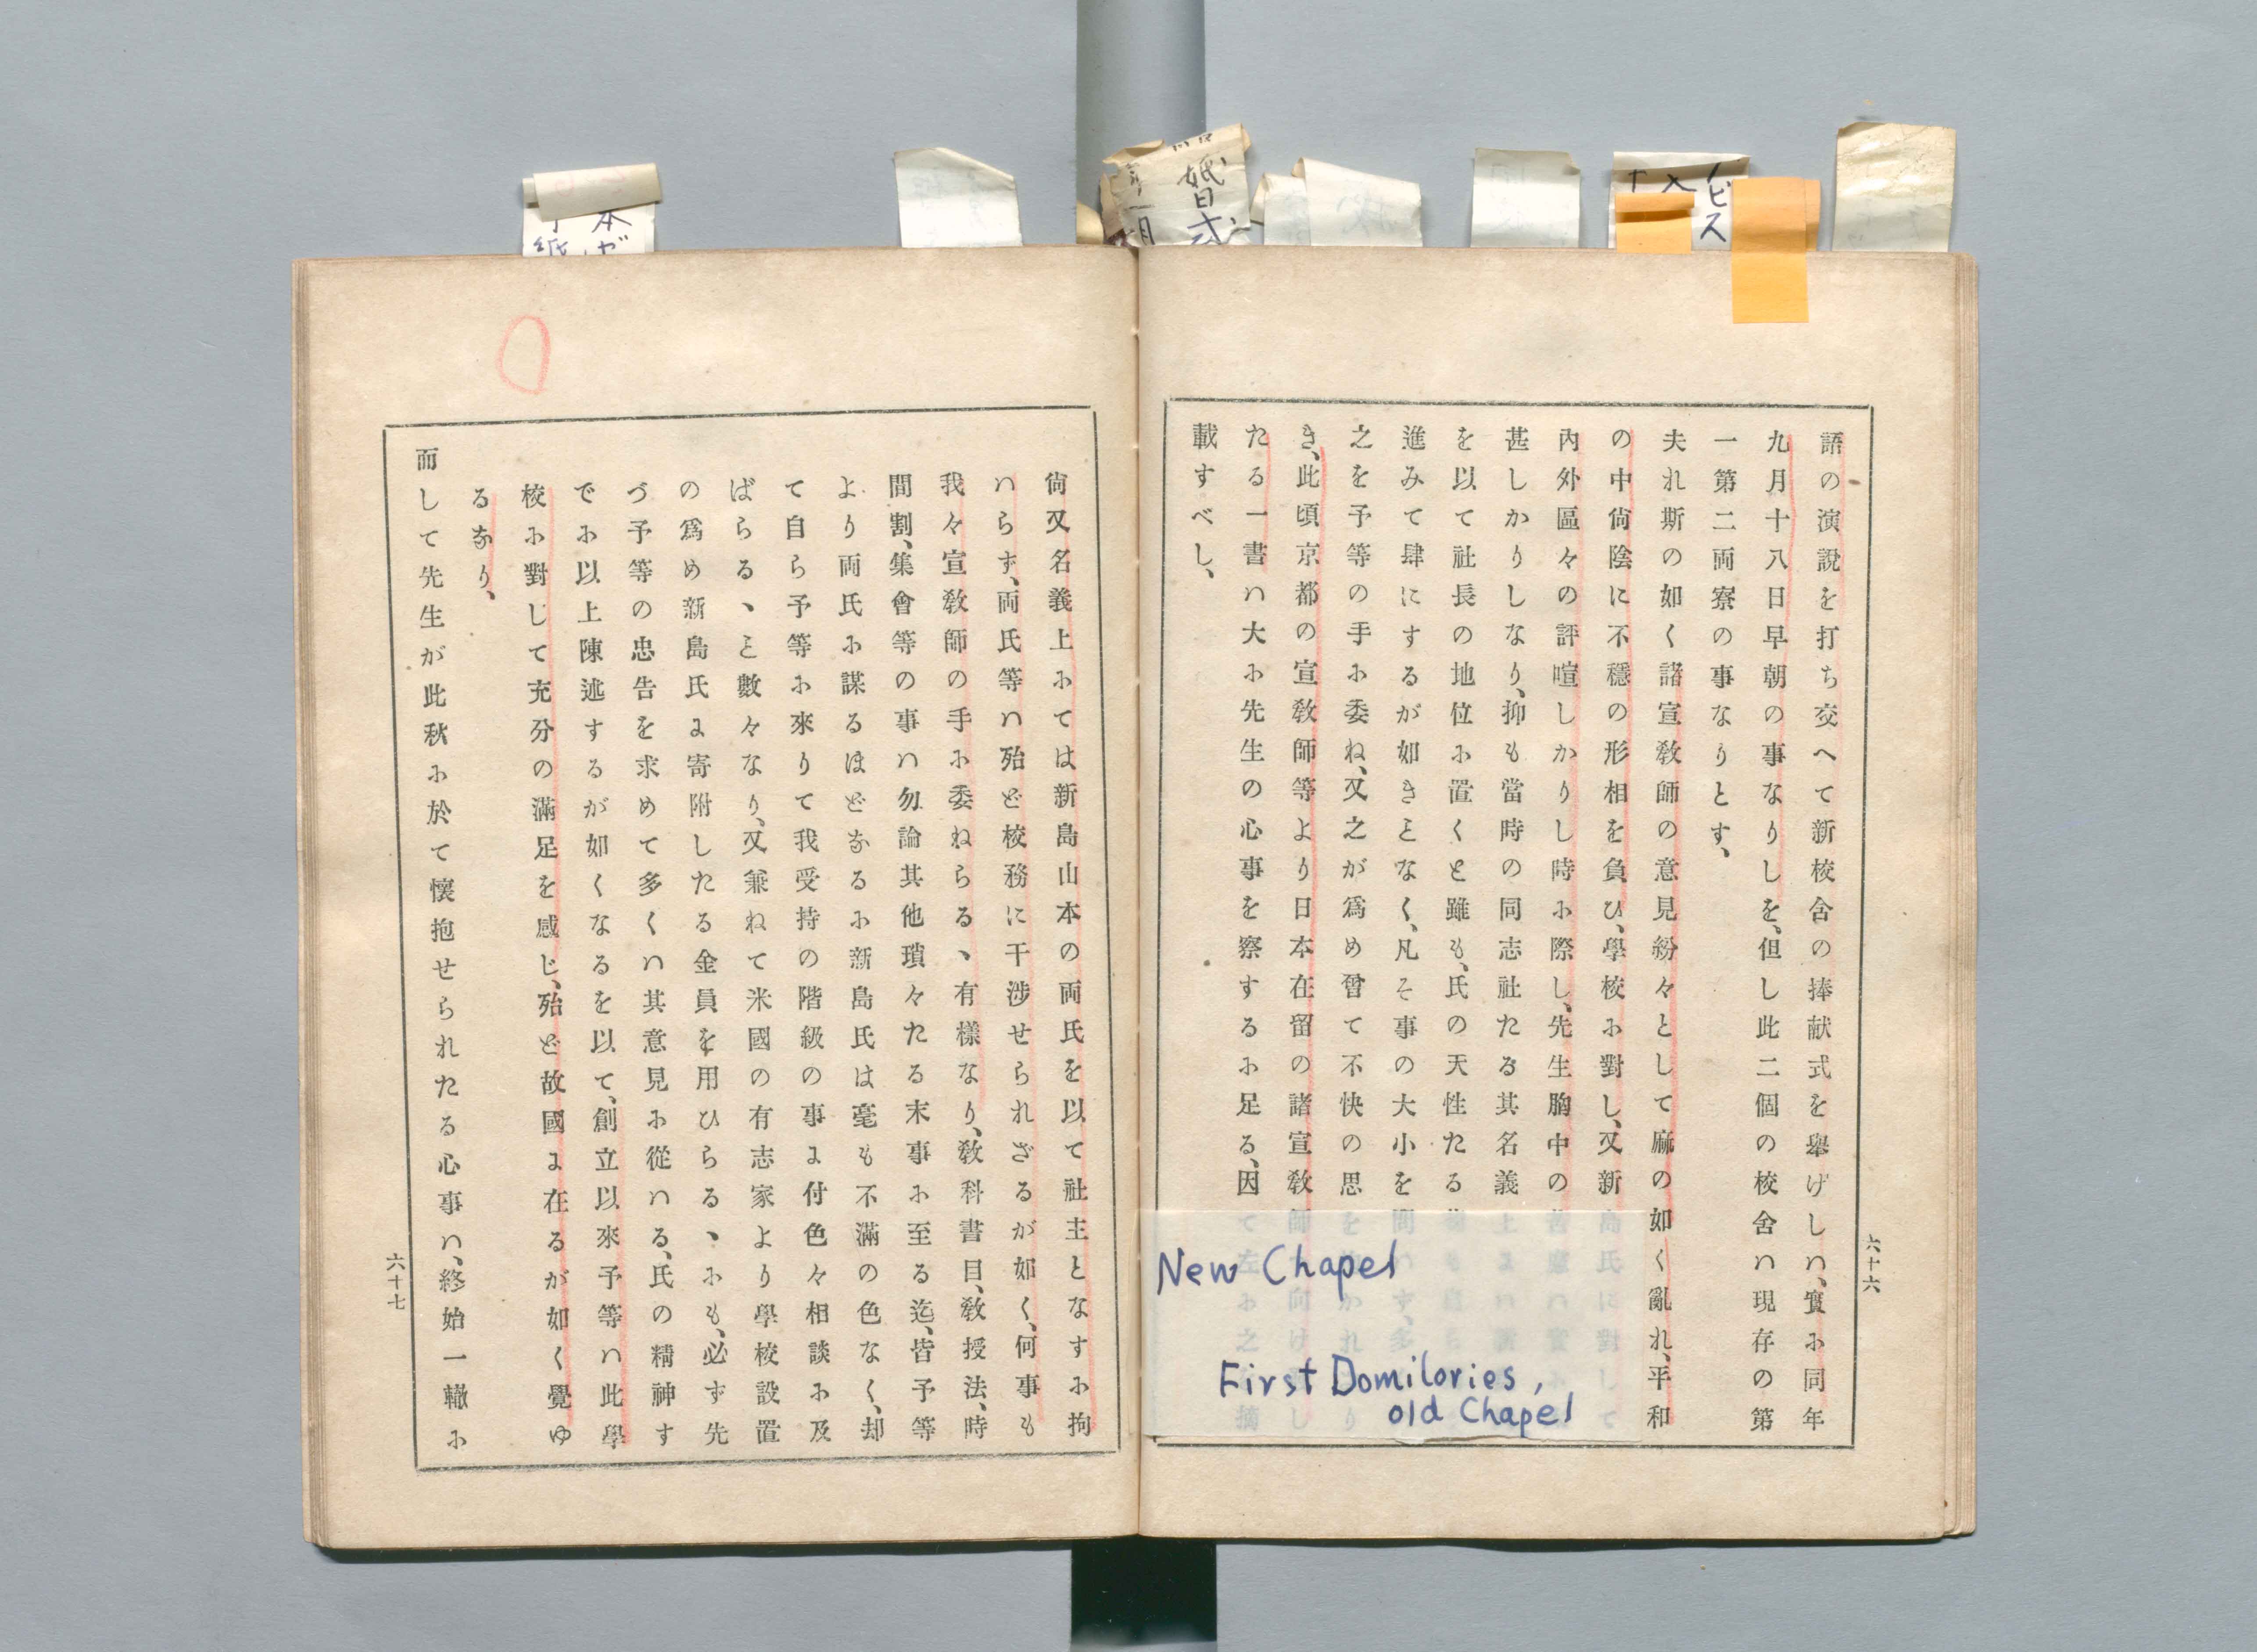 語の演說を打ち交へて新校舍の捧献式を舉げしハ、實ホ同年
九月十八日早朝の事なりしを、但し此二個の校舍ハ現存の第
一第二両寮の事なりとす、
夫れ斯の如く諸宣敎師の意見紛々として麻の如く亂れ、平和
の中尙陰に不穩の形相を負ひ、學校ホ對し、又新島氏に對して
內外區々の評喧しかりし時ホ際し、先生胸中の
甚しかりしなり、抑も當時の同志社たる其名義上
を以て社長の地位ホ置くと雖も、氏の天性たる
進みて肆にするが如きとなく、凡そ事の大小を問ハず、多
之を予等の手ホ委ね、又之が爲め曾て不快の思を
き、此頃京都の宣敎師等より日本在留の諸宣敎師へ向け
たる一書ハ大ホ先生の心事を察するホ足る、因て左ホ之摘
載すべし、
六十六
New Chapel
First Domilories,
old Chapel
尙又名義上ホては新島山本の両氏を以て社主となすホ拘
ハらず、両氏等ハ殆ど校務に干涉せられざるが如く、何事も
我々宣敎師の手ホ委ねらる、有樣なり、敎科書目、敎授法、時
間割、集會等の事ハ勿論其他瑣々たる末事ホ至る迄、皆予等
より両氏ホ謀るほどなるホ新島氏は毫も不滿の色なく、却
て自ら予等ホ來りて我受持の階級の事ま付色々相談ホ及
ばらる、と數々なり、又兼ねて米國の有志家より學校設置
の爲め新島氏ま寄附したる金員を用ひらる、ホも、必ず先
づ予等の忠告を求めて多くハ其意見ホ從ハる、氏の精神す
でホ以上陳述するが如くなるを以て、創立以來予等ハ此學
校ホ對して充分の滿足を感じ、殆ど故國ま在るが如く覺ゆ
るなり、
而して先生が此秋ホ於て懷抱せられたる心事ハ、終始一轍ホ
六十七
婚
式
ビス
本
紙